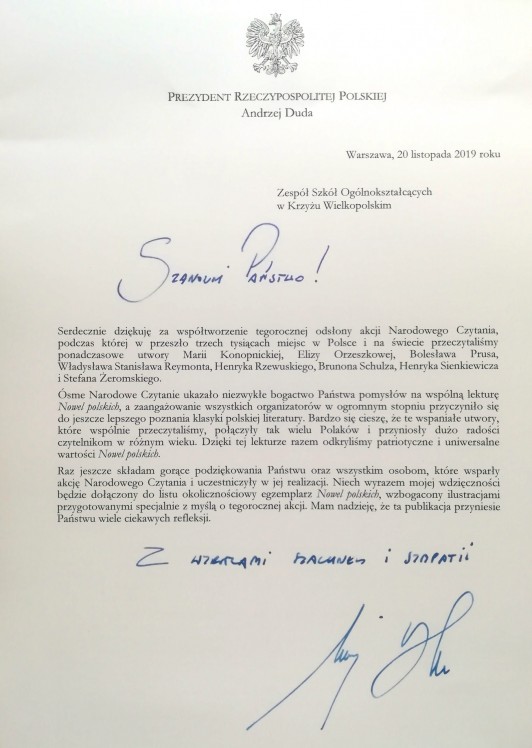 PREZYDENT RZECZYPOSPOLITEJ POLSKIEJ
Andrzej Duda
Warszawa, 20 listopada 2019 roku
Zespół Szkół Ogólnokształcących
w Krzyżu Wielkopolskim
Szanowni Państwo!
Serdecznie dziękuję za współtworzenie tegorocznej odsłony akcji Narodowego Czytania,
podczas której w przeszło trzech tysiącach miejsc w Polsce i na świecie przeczytaliśmy
ponadczasowe utwory Marii Konopnickiej, Elizy Orzeszkowej, Bolesława Prusa,
Władysława Stanisława Reymonta, Henryka Rzewuskiego, Brunona Schulza, Henryka Sienkiewicza
i Stefana Żeromskiego.
Ósme Narodowe Czytanie ukazało niezwykłe bogactwo Państwa pomysłów na wspólną lekturę
Nowel polskich, a zaangażowanie wszystkich organizatorów w ogromnym stopniu przyczyniło się
do jeszcze lepszego poznania klasyki polskiej literatury. Bardzo się cieszę, że te wspaniałe utwory,
które wspólnie przeczytaliśmy, połączyły tak wielu Polaków i przyniosły dużo radości
czytelnikom w różnym wieku. Dzięki tej lekturze razem odkryliśmy patriotyczne i uniwersalne
wartości Nowel polskich.
Raz jeszcze składam gorące podziękowania Państwu oraz wszystkim osobom, które wsparły
akcję Narodowego Czytania i uczestniczyły w jej realizacji. Niech wyrazem mojej wdzięczności
będzie dołączony do listu okolicznościowy egzemplarz Nowel polskich, wzbogacony ilustracjami
przygotowanymi specjalnie z myślą o tegorocznej akcji. Mam nadzieję, że ta publikacja przyniesie
Państwu wiele ciekawych refleksji.
Z wyrazami szacunku i sympatii